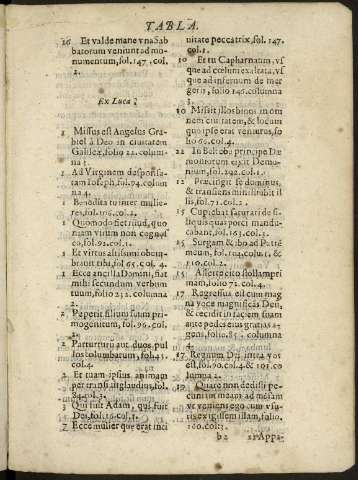 TABLA.
16 Et valde mane vna Sab
batorum veniunt ad mo-
numentum, fol. 147. col.
2.
Ex Luca
1 Missus est Angelus Gra-
briel à Deo in ciuitatem
Galileæ, folio 22. colum
na 1.
1 Ad Virginem desponsa-
tam Ioseph, fol. 74. colum
na 4.
1 Benedita tu inter mulie-
res, fol. 106. col. 2.
1 Quomodo fiet istud, quo
niam virum non cognos
co, fol. 92. col. 1.
1 Et virtus altissimi obum-
brauit tibi, fol. 65. col. 4.
1 Ecce ancilla Domini, fiat
mihi secundum verbum
tuum, folio 232. columna
2.
2 Peperit filium suum pri-
mogenitum, fol. 96. col.
2 Par turturu aut duos pul
los columbarum, fol. 45.
col. 4.
2 Et tuam ipsius animam
pertransiit gladius, fol.
84. col. 3.
3 Qui fuit Adam, qui fuit
Dei, fol. 16. col. 1.
7 Ecce mulier quæ erat in ci
uitate peccatrix, fol. 147.
col. 1.
10 Et tu Capharnaum, vs
que ad cœlum exaltata, vs
que ad infernum de mer
geris, folio 146. columna
3.
10 Missit illos binos in om
nem ciuitatem, & locum
quo ipse erat venturus, fo
lio 66. col. 4.
22 In Belcebu principe Dæ
moniorum eiicit Demo-
nium, fol. 292. col. 1.
12 Præcinget se dominus,
& transiens ministrabit il
lis, fol. 71. col. 2.
15 Cupiebat saturari de si-
liquis quas porci mandu-
cabant, fol. 121. col. 3.
15 Surgam & ibo ad Patrē
meum, fol. 104. col. 1. &
110. col. 2.
15 Afferte cito stollam pri
mam, folio 71. col. 4.
17 Regressus est cum mag
na voce magnificās Deū,
& cecidit in faciem suam
ante pedes eius gratias a-
gens, folio 85. columna
4.
17 Regnum Dei intra vos
est, fol. 90. col. 4. & 101. co
lumna 2.
19 Quare non dedisti pe-
cuniam meam ad mēsam
vt veniens ego cum vsu-
ris exigissem illam, folio.
100. col. 3.
b 2
21 Appa-